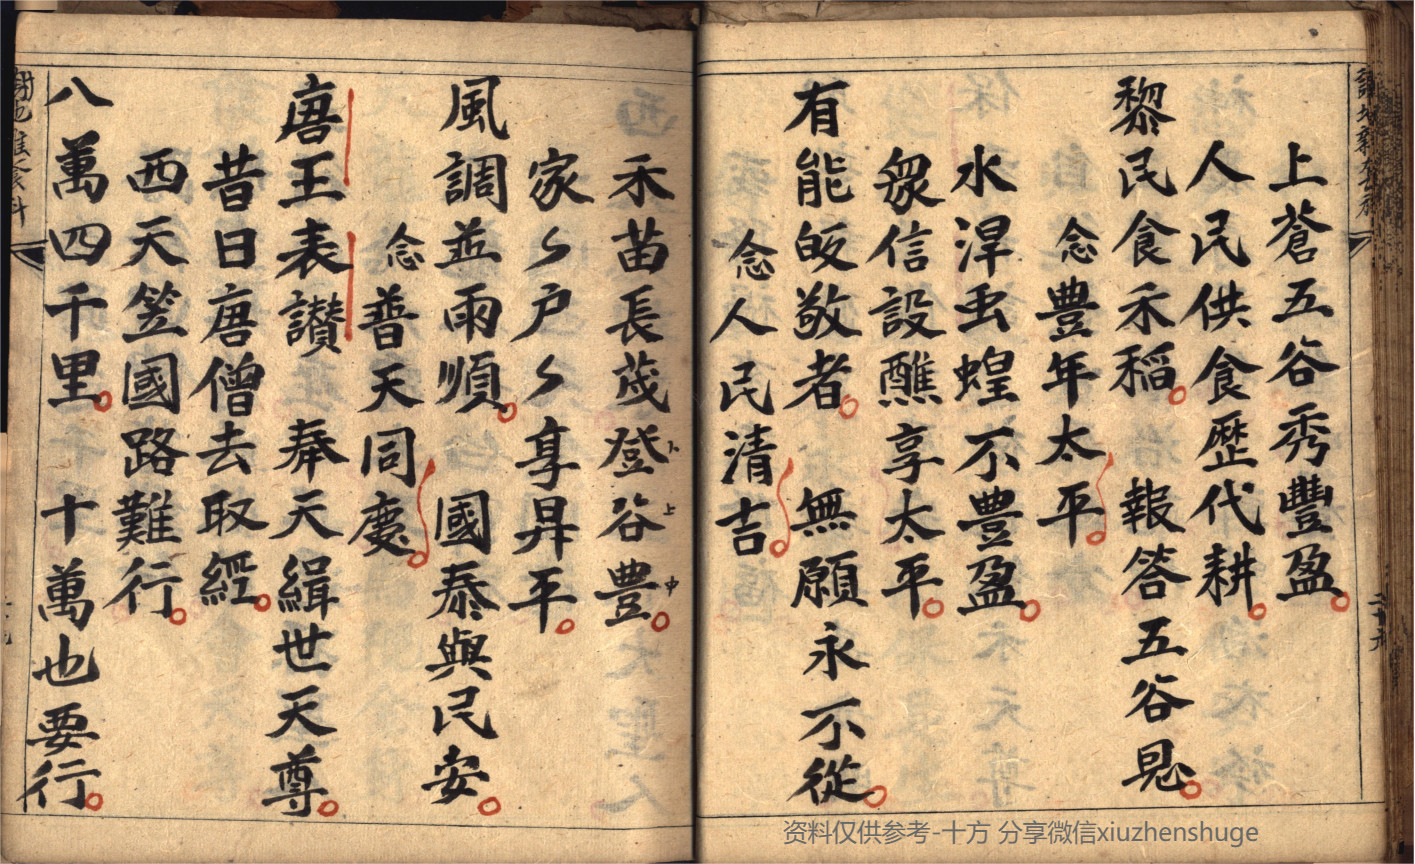 上蒼五谷秀豐盈
人民供食歷代耕
黎民食禾稻 報答五谷恩
念豊年太平
水淂虫蝗不豊盈
衆信設醮享太平
有能皈敬者 無願永不從
念人民清吉
禾苗長茂登谷豊
卜上中
家〻户〻享昇平
風調並雨順 國泰與民安
念普天同慶
唐王表讃 奉天緝世天尊
昔日唐僧去取經
西天笠國路難行
八萬四千里 十萬也要行
资料仅供参考-十方 分享微信xiuzhenshuge